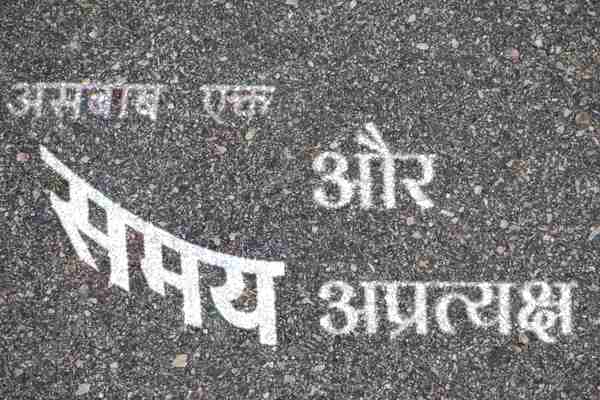 असबाब एक
और
समय
अप्रत्यक्ष